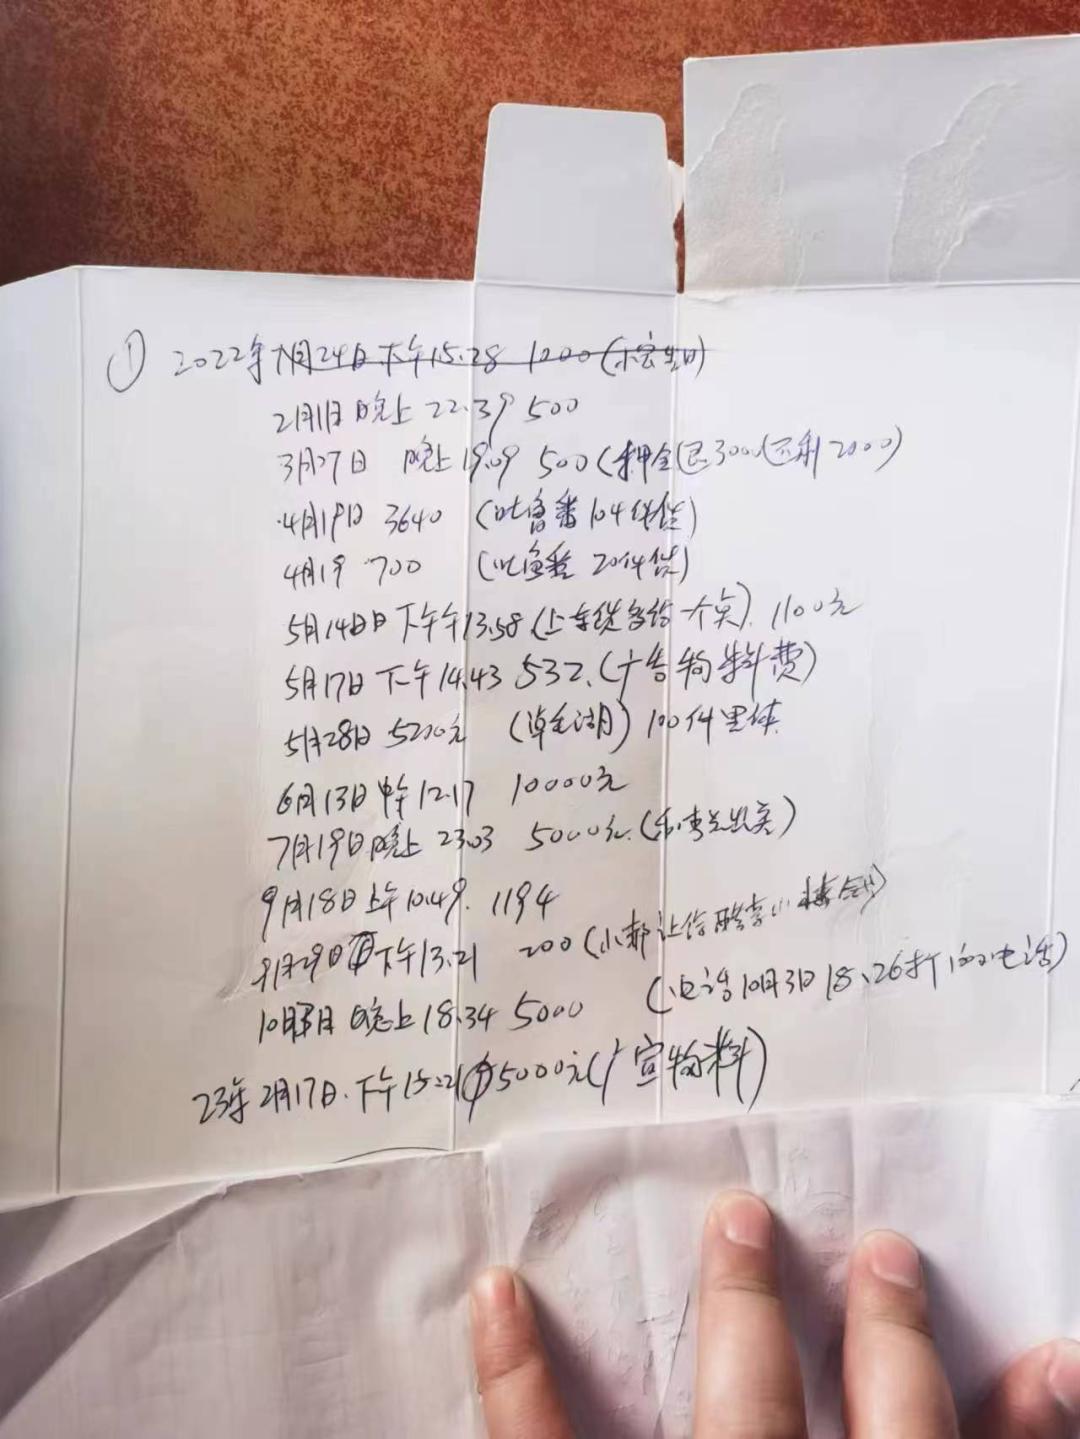 ① 2022年1月24日下午15.28 1200(小宏生日)
2月1日晚上22.39 500
3月27日 晚上19.09 500(押金已3000还剩2000)
4月19日 3640 (吐鲁番104件货)
4月19 700 (吐鲁番20件货)
5月14日 下午13.58 1100元
5月17日下午14.43 532.(广告物料费)
5月28日 5200元 100件
6月13日中午12.17 10000元
7月19日晚上 23.03 5000元.
9月18日上午10.49. 1194
9月29日下午13.21 200(小郝让你
10月3日 晚上18.34 5000 (电话10月3日18.26打的电话)
23年2月17日.下午15.21 5000元(广宣物料)